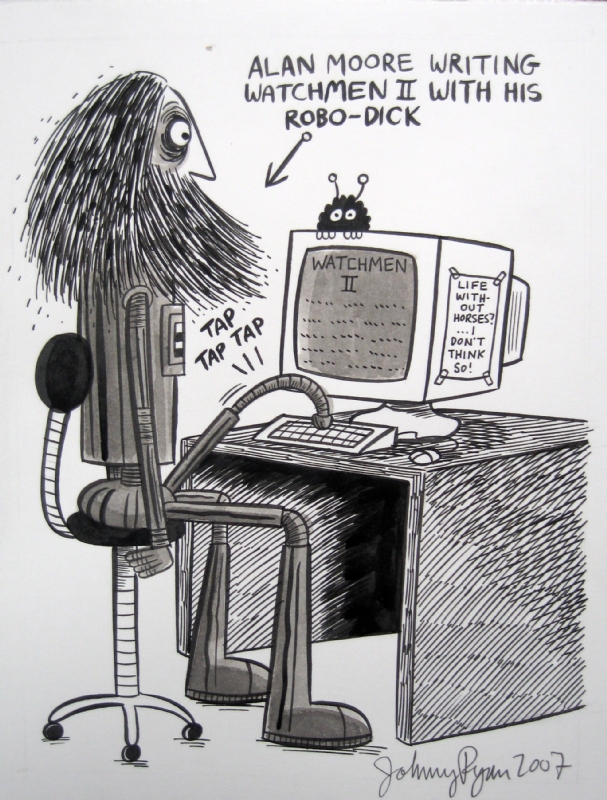 ALAN MOORE WRITING
WATCHMEN II WITH HIS
ROBO-DICK
WATCHMEN
II
LIFE
WITH-
OUT
HORSES?
...I
DON'T
THINK
SO!
TAP
TAP TAP
Johnny Ryan 2007